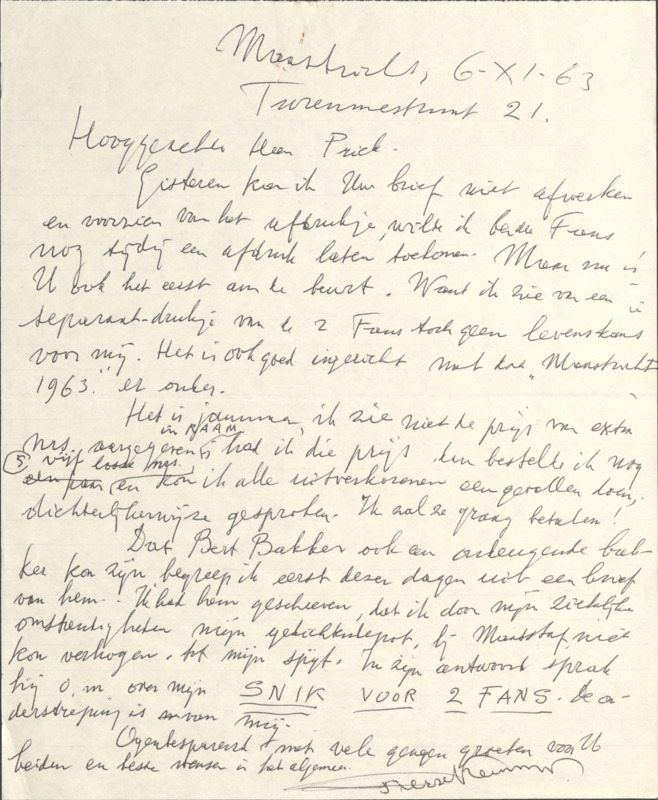 Maastricht, 6-XI-63
Turennestraat 21.
Hooggeachte Heer Prick.
Gisteren kon ik Uw brief niet afwerken
en voorzien van het afdrukje, wilde ik beide Fans
nog tijdig een afdruk laten toekomen. Maar nu is
U ook het eerst aan de beurt. Want ik zie van een
separaat-drukje van de 2 Fans toch geen levenskans
voor mij. Het is ook goed ingericht met dat "Maastricht
1963." er onder.
Het is jammer, ik zie niet de prijs van extra
nrs. aangegeven in RAAM, had ik die prijs dan bestelde ik nog
(5) vijf losse nrs. en kon ik alle uitverkorenen een gevallen doen,
dichterlijkerwijze gesproken. Ik zal ze graag betalen!
Dat Bert Bakker ook een ondeugende bak-
ker kon zijn begreep ik eerst dezer dagen uit een brief
van hem. Ik had hem geschreven, dat ik door mijn ziekelijke
omstandigheden mijn gedichtendepot, bij Maasstaf, niet
kon verhogen, tot mijn spijt. In zijn antwoord sprak
hij o.m. over mijn SNIK VOOR 2 FANS. De on-
derstreping is van mij.
Ogenbesparend met vele groeten voor U
beiden en beste wensen in het algemeen.